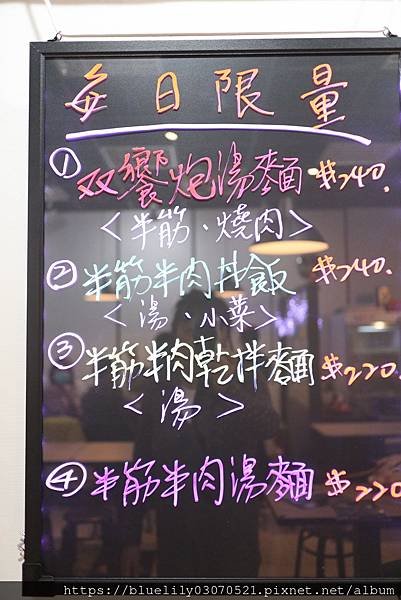 每日限量
① 双饗炮湯麵 $240.
<半筋、燒肉>
② 半筋半肉丼飯 $240.
<湯、小菜>
③ 半筋半肉乾拌麵 $220.
<湯>
④ 半筋半肉湯麵 $220
https://bluelily03070521.pixnet.net/album